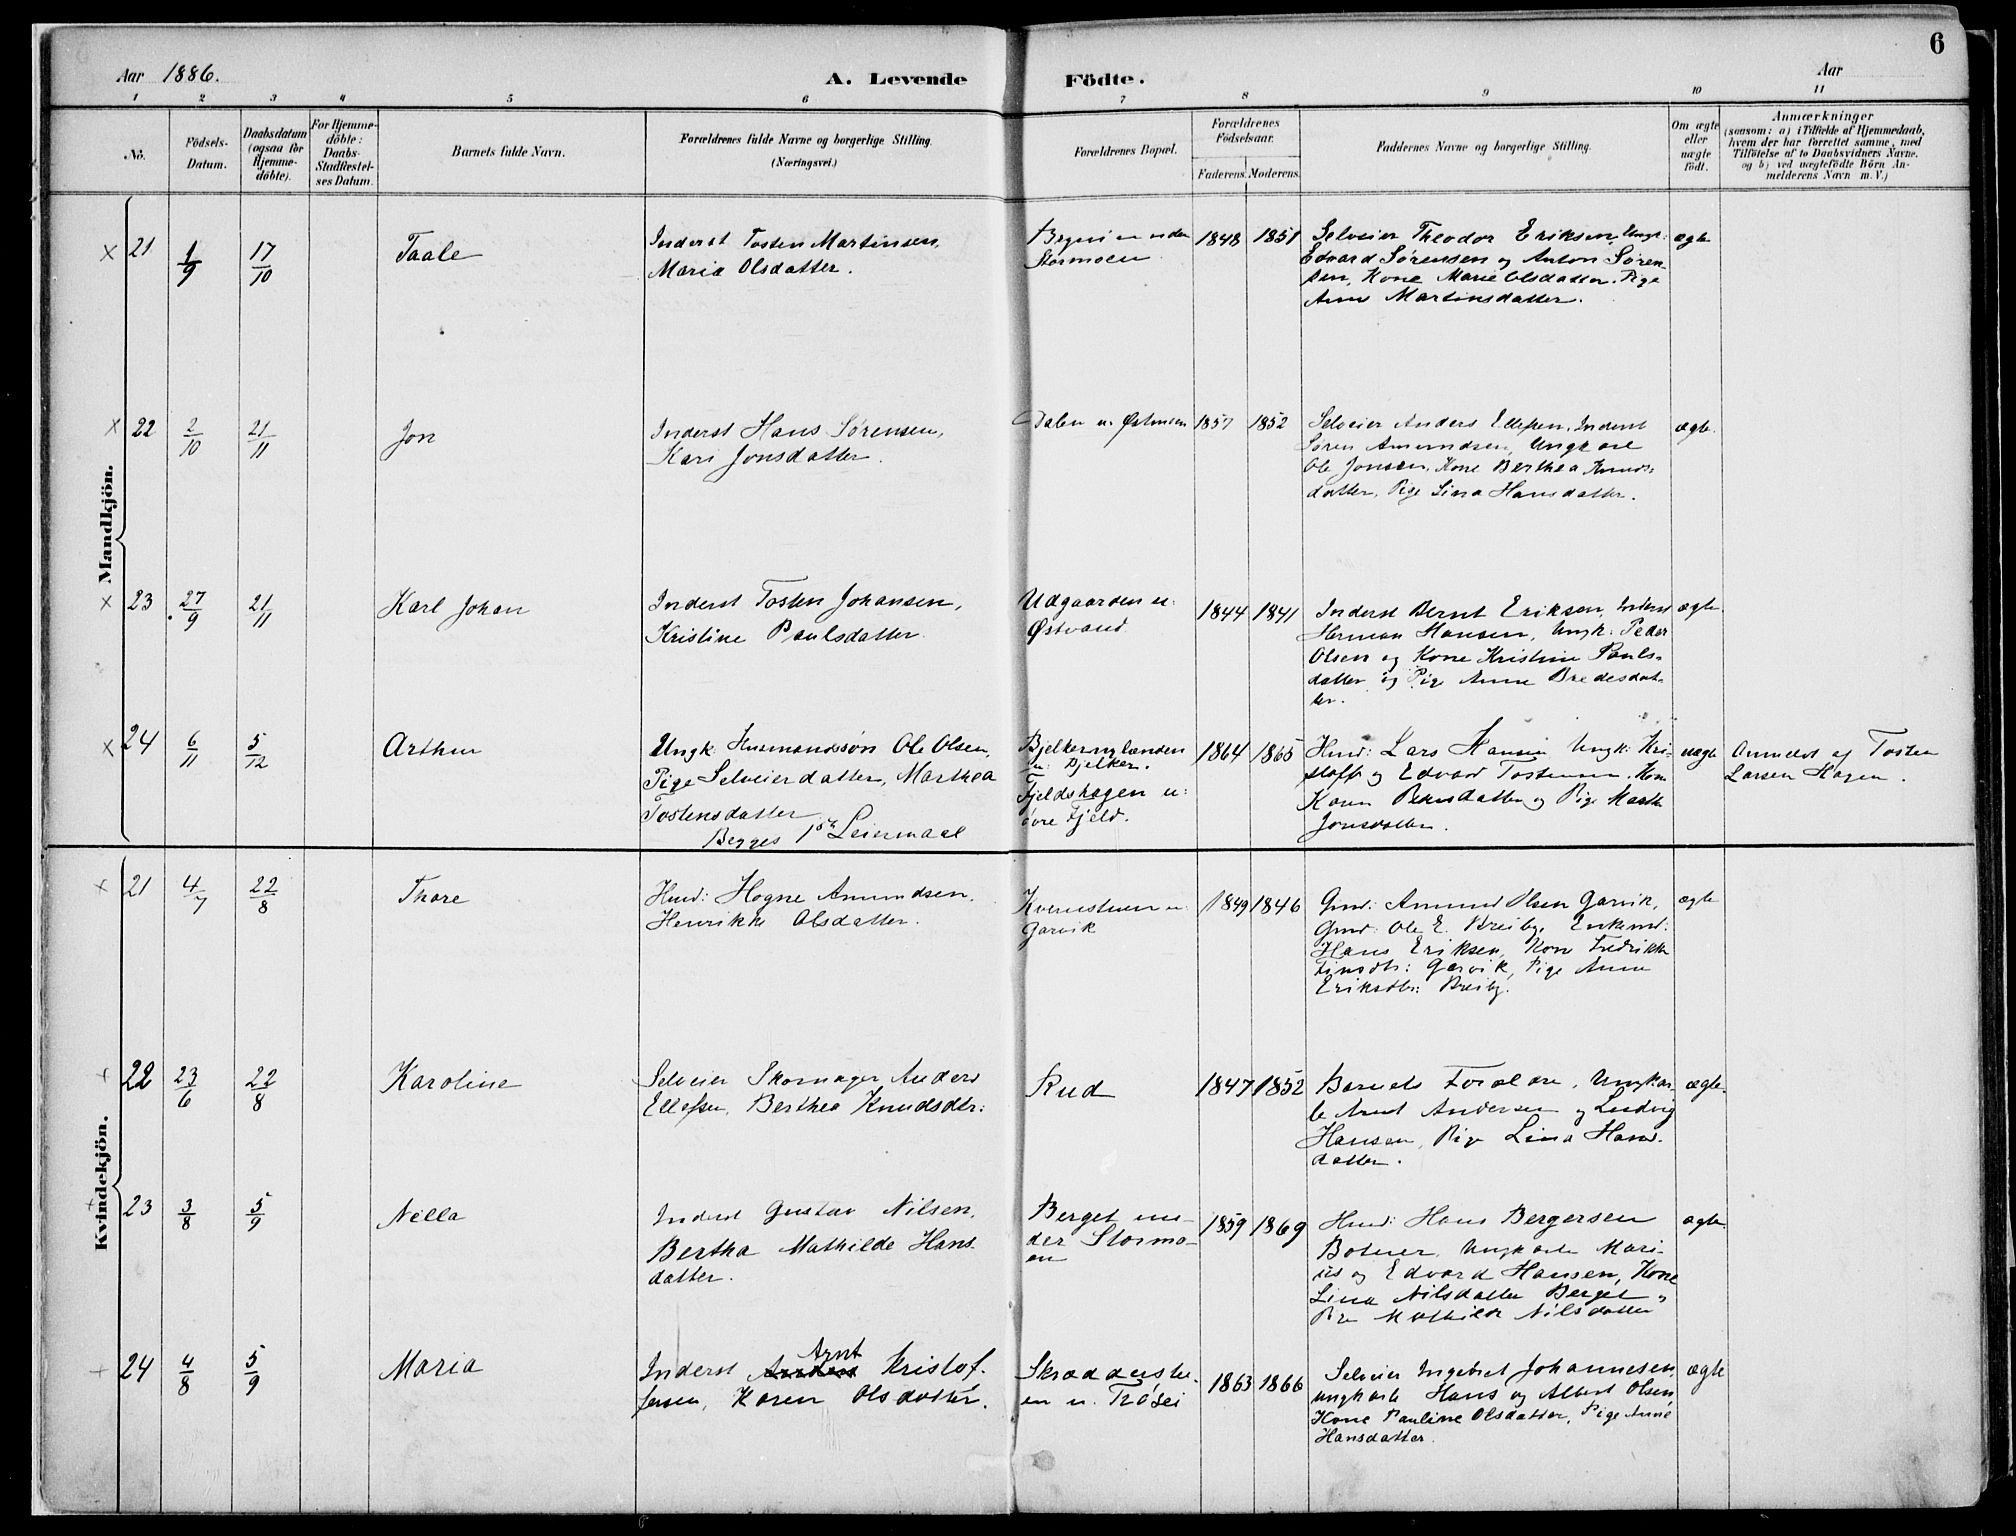 6
Aar 1886. A. Levende Födte. Aar
1 2 3 4 5 6 7 8 9 10 11
No.
Födsels-
Datum.
Daabsdatum
(ogsaa for
Hjemme-
döbte).
For Hjemme-
döbte:
Daabs-
Stadfæstel-
ses Datum.
Barnets fulde Navn.
Forældrenes fulde Navne og borgerlige Stilling.
(Næringsvei.)
Forældrenes Bopæl.
Forældrenes
Födselsaar.
Faderens. Moderens.
Faddernes Navne og borgerlige Stilling.
Om ægte
eller
uægte
födt.
Anmærkninger
(saasom: a) i Tilfælde af Hjemmedaab,
hvem der har forrettet samme, med
Tilföielse af to Daabsvidners Navne,
og b) ved uægtefödte Börn An-
melderens Navn m. V.)
Mandkjön.
× 21 1/9 17/10 Taale
Inderst Tosten Martinsen,
Maria Olsdatter.
under
Stormoen
1848 1851
Selveier Theodor Eriksen, Ungk:
Edvard Sørensen og Anton Søren-
sen, Kone Marie Olsdatter. Pige
Anne Martinsdatter.
ægte
× 22 2/10 21/11 Jon
Inderst Hans Sørensen,
Kari Jonsdatter.
Dalen u. Østmoen
1857 1852
Selveier Anders Ellefsen, Inderst
Søren Amundsen, Ungkarl
Ole Jonsen, Kone Berthea Knuds-
datter, Pige Lina Hansdatter.
ægte.
× 23 27/9 21/11 Karl Johan
Inderst Tosten Johansen,
Kristine Paulsdatter.
Udgaarden u:
Østvand.
1844 1841
Inderst Bernt Eriksen, Inderst
Herman Hansen, Ungk: Peder
Olsen og Kone Kristine Pauls-
datter og Pige Anne Bredesdat-
ter.
ægte.
× 24 6/11 5/12 Arthur
Ungk: Husmandssøn Ole Olsen,
Pige Selveierdatter, Marthea
Tostensdatter
Begges 1ste Leiermaal
Bjelkernylænden
u: Bjelker.
Fjeldshagen u:
øvre Fjeld.
1864 1865
Husd: Lars Hansen Ungk: Kri-
stoff og Edvard Tostensen. Kone
Karen Pedersdatter og Pige Marthe
Jonsdatter.
uægte
Anmeldt af Tosten
Larsen Hagen.
Kvindekjön.
× 21 4/7 22/8 Thore
Husd: Hogne Amundsen,
Henrikke Olsdatter.
Kvernstuen u:
Garvik
1849 1846
Grmd: Amund Olsen Garvik,
Grmd: Ole E. Breiby, Enkemd:
Hans Eriksen, Kone Fredrikke
Finsdtr: Garvik, Pige Anne
Eriksdtr: Breiby.
ægte
+ 22 23/6 22/8 Karoline
Selveier Skomager Anders
Ellefsen, Berthea Knudsdtr:
Rud
1847 1852
Barnets Forældre, Ungkar-
le Arnt Andersen og Ludvig
Hansen, Pige Lina Hans-
datter.
ægte.
+ 23 3/8 5/9 Nella
Inderst Gustav Nilsen,
Bertha Mathilde Hans-
datter.
Berget un-
der Stormo-
en
1859 1869
Husd: Hans Bergersen
Ungkarle Mari-
us og Edvard Hansen, Kone
Lina Nilsdatter Berget,
Pige Mathilde Nilsdatter
ægte.
+ 24 4/8 5/9 Maria
Arnt
Inderst Anders Kristof-
fersen, Karen Olsdatter.
Skræddershe-
en u. Trösei
1863 1866
Selveier Ingebret Johannesen,
ungkarle Hans og Albert Olsen,
Kone Pauline Olsdatter, Pige Anne
Hansdatter.
ægte